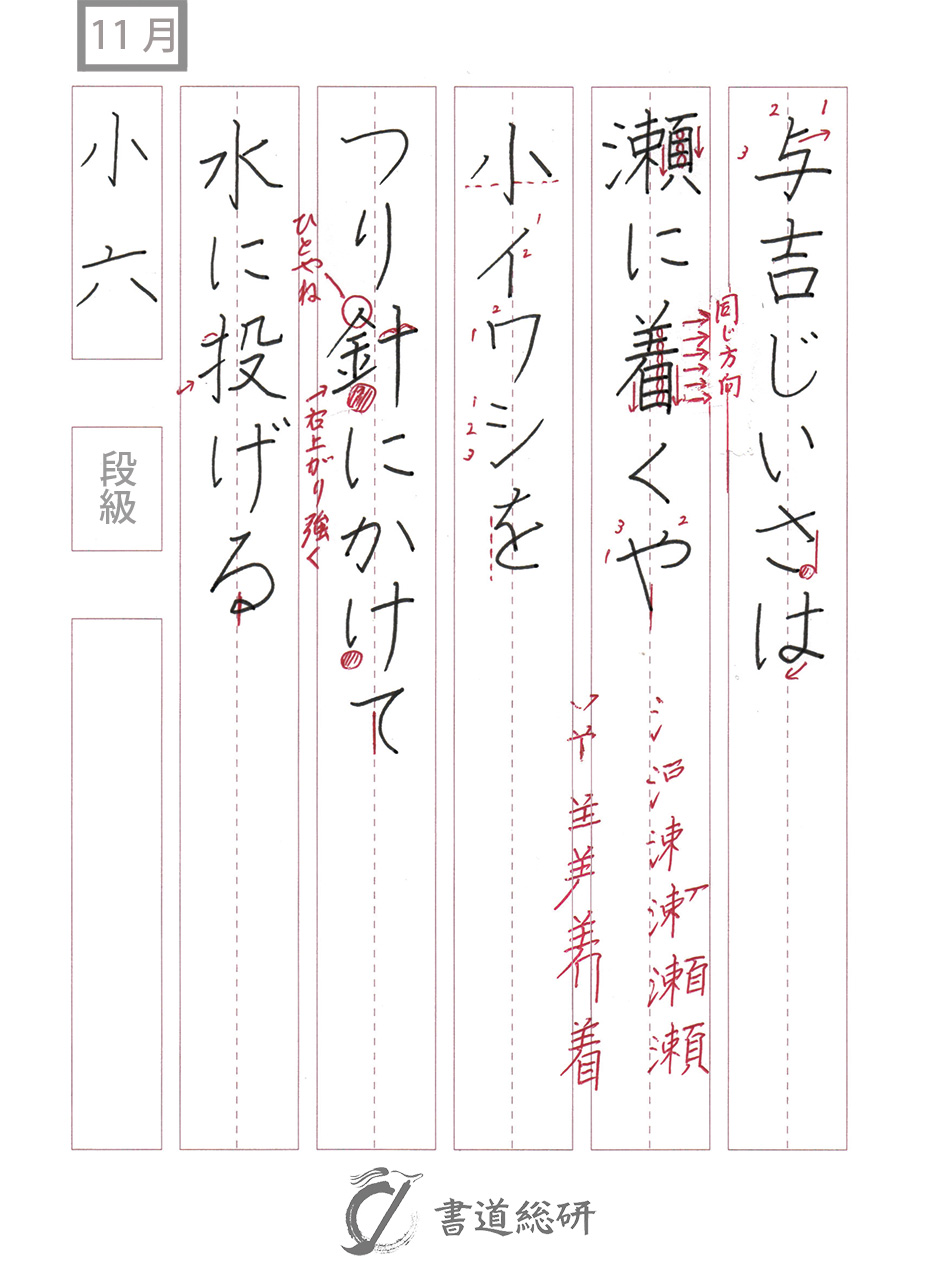 11月
与吉じいさは
瀬に着くや
小イワシを
つり針にかけて
水に投げる
小六
段級
1
2
3
同じ方向
3
2
1
1
2
2
1
1
2
3
ひとやね
右上がり強く
瀬
着
書道総研